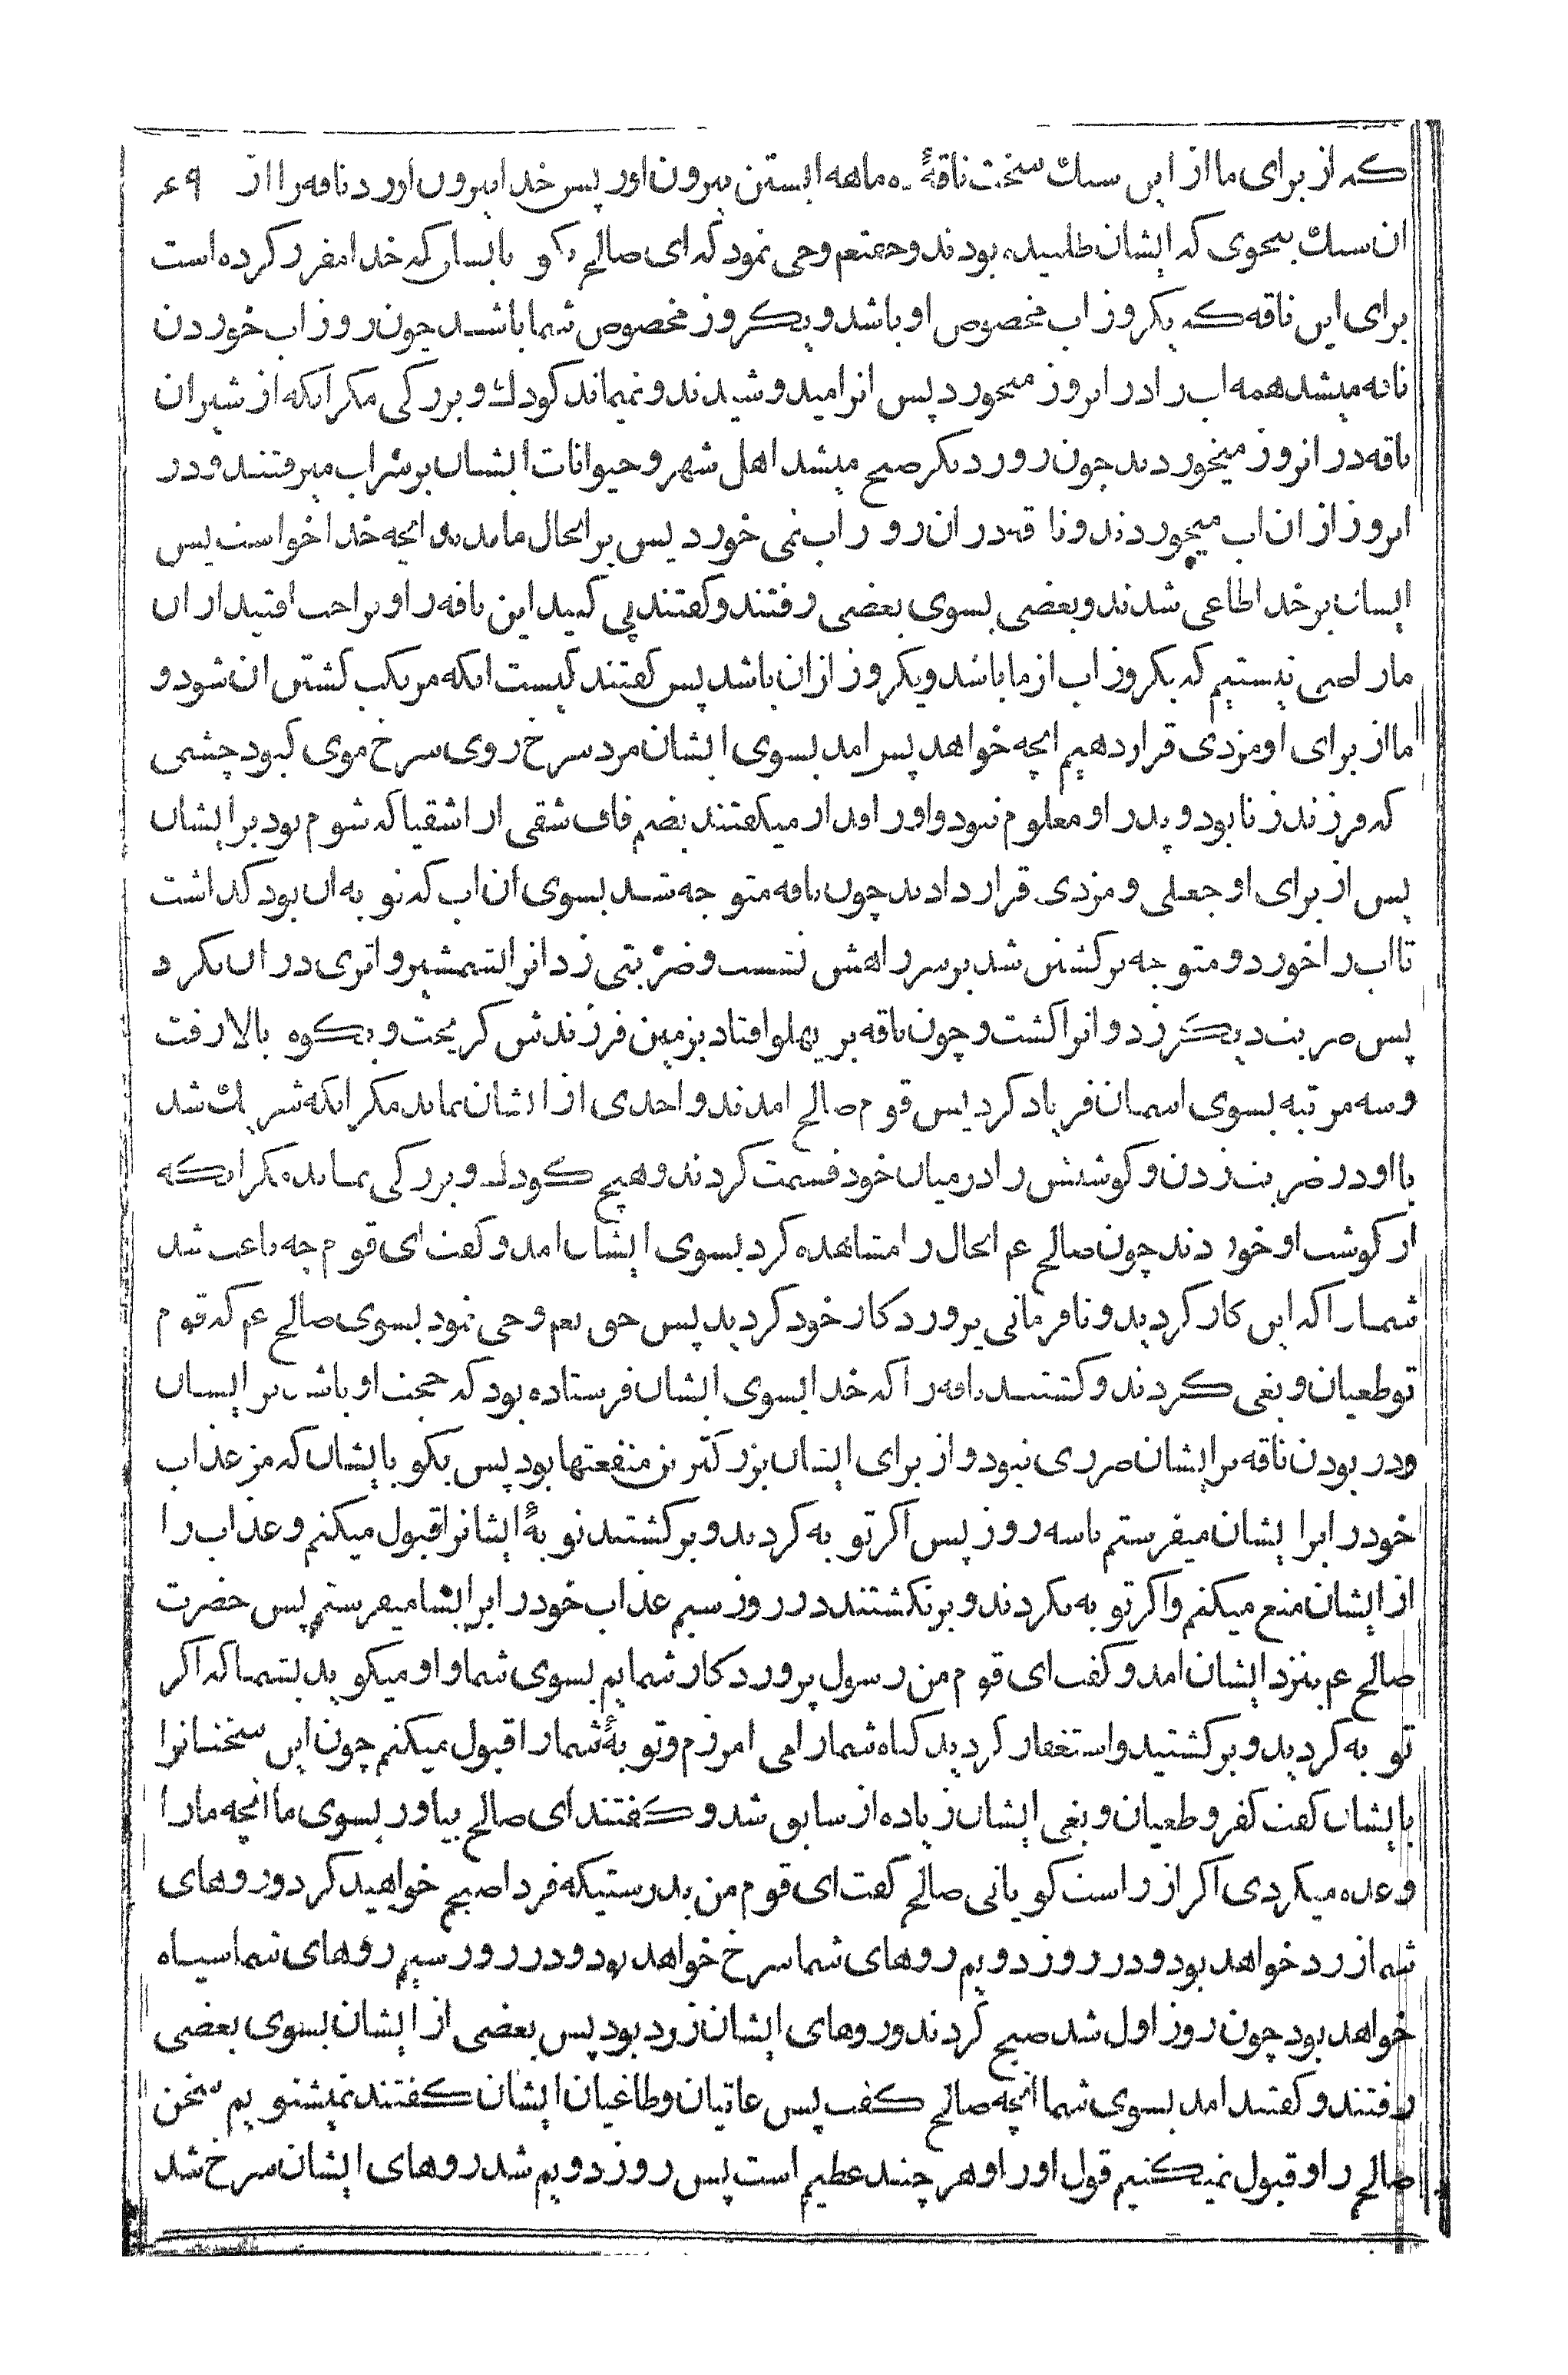 که از برای ما از این سنك سخت ناقهٔ ده ماهه ابستن بیرون اور پس خدا بیرون اورد ناقه را از ۴۹
ان سنك بنحوی که ایشان طلبیده بودند وحقتعم وحی نمود که ای صالح بکو بایشان که خدا مقرر کرده است
برای این ناقه که یکروز اب مخصوص او باشد ویکروز مخصوص شما باشد چون روز اب خوردن
ناقه میشد همه اب را در انروز میخورد پس انرا میدوشیدند ونمیماند کودك وبزرکی مکر انکه از شیر ان
ناقه در انروز میخوردند چون روز دیکر صبح میشد اهل شهر وحیوانات ایشان بر سر اب میرفتند ودر
انروز از ان اب میخوردند ونا قه در ان روز اب نمی خورد پس بر انحال ماندند انچه خدا خواست پس
ایشان بر خدا طاعی شدند وبعضی بسوی بعضی رفتند وکفتند پی کنید این ناقه را وراحت افتید از ان
ما راضی نیستیم که یکروز اب از ما باشد ویکروز از ان باشد پس کفتند کیست انکه مرتکب کشتن ان شود و
ما از برای او مزدی قرار دهیم انچه خواهد پس امد بسوی ایشان مرد سرخ روی سرخ موی کبود چشمی
که فرزند زنا بود وپدر او معلوم نبود واورا قدار میکفتند بضم قاف شقی از اشقیا که شوم بود بر ایشان
پس از برای او جعلی ومزدی قرار دادند چون ناقه متوجه شد بسوی ان اب که نوبه ان بود کذاشت
تا اب را خورد ومتوجه برکشتن شد بر سر راهش نشست وضربتی زد انرا بشمشیر واثری در ان نکرد
پس ضربت دیکر زد وانرا کشت وچون ناقه بر پهلو افتاد بزمین فرزندش کریخت وبکوه بالا رفت
وسه مرتبه بسوی اسمان فریاد کرد پس قوم صالح امدند واحدی از ایشان نماند مکر انکه شریك شد
با او در ضربت زدن وکوشتش را در میان خود قسمت کردند وهیچ کودك وبزرکی نمانده مکر انکه
از کوشت او خوردند چون صالح عم انحال را مشاهده کرد بسوی ایشان امد وکفت ای قوم چه باعث شد
شما را که این کار کردید ونافرمانی پروردکار خود کردید پس حق تعم وحی نمود بسوی صالح عم که قوم
تو طعیان وبغی کردند وکشتند ناقه را که خدا بسوی ایشان فرستاده بود که حجت او باشد بر ایشان
ودر بودن ناقه بر ایشان ضرری نبود واز برای ایشان بزرکترین منفعتها بود پس بکو بایشان که من عذاب
خود را بر ایشان میفرستم تا سه روز پس اکر توبه کردند وبرکشتند توبهٔ ایشانرا قبول میکنم وعذاب را
از ایشان منع میکنم واکر توبه نکردند وبرنکشتند در روز سیم عذاب خود را بر ایشا میفرستم پس حضرت
صالح عم بنزد ایشان امد وکفت ای قوم من رسول پروردکار شمایم بسوی شما واو میکوید بشما که اکر
توبه کردید وبرکشتید واستغفار کردید کناه شما را می امرزم وتوبهٔ شما را قبول میکنم چون این سخنانرا
بایشان کفت کفر وطعیان وبغی ایشان زیاده از سابق شد وکفتند ای صالح بیاور بسوی ما انچه ما را
وعده میکردی اکر از راست کویانی صالح کفت ای قوم من بدرستیکه فردا صبح خواهید کرد وروهای
شما زرد خواهد بود ودر روز دویم روهای شما سرخ خواهد بود ودر روز سیم روهای شما سیاه
خواهد بود چون روز اول شد صبح کردند وروهای ایشان زرد بود پس بعضی از ایشان بسوی بعضی
رفتند وکفتند امد بسوی شما انچه صالح کفت پس عاتیان وطاغیان ایشان کفتند نمیشنویم سخن
صالح را وقبول نمیکنیم قول اورا وهر چند عظیم است پس روز دویم شد روهای ایشان سرخ شد